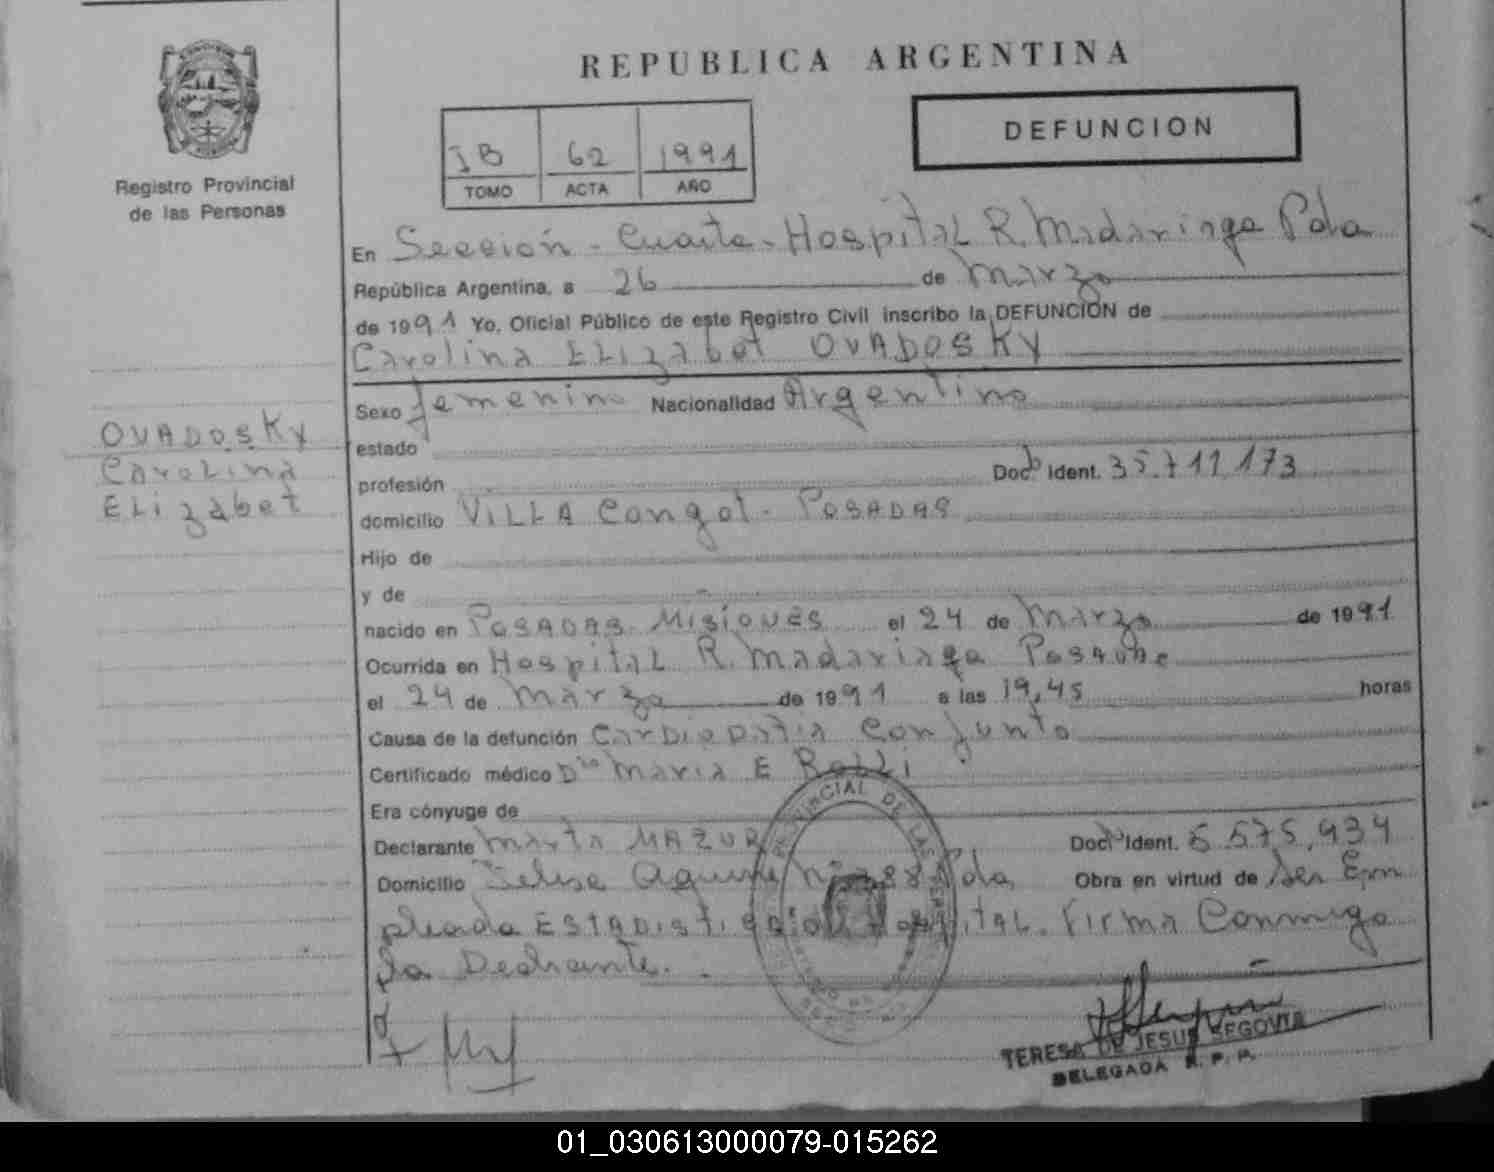 REPUBLICA ARGENTINA
Registro Provincial
de las Personas
IB 62 1991
TOMO ACTA AÑO
DEFUNCION
En Sección - Cuarta - Hospital R. Madariaga Pdas
República Argentina, a 26 de Marzo
de 1991 Yo, Oficial Público de este Registro Civil inscribo la DEFUNCION de
Carolina Elizabet OVADOSKY
OVADOSKY
Carolina
Elizabet
Sexo femenino Nacionalidad Argentina
estado
profesión Doc Ident. 35.711.173
domicilio VILLA - POSADAS
Hijo de
y de
nacido en POSADAS - MISIONES el 24 de Marzo de 1991
Ocurrida en Hospital R. Madariaga
el 24 de Marzo de 1991 a las 19,45 horas
Causa de la defunción
Certificado médico Maria E
Era cónyuge de
Declarante Marta MAZUR Doc Ident. 575,934
Domicilio Obra en virtud de Ser Em
pleada Hospital. Firma Conmigo
la
PROVINCIAL DE LAS
TERESA DE JESUS SEGOVIA
DELEGADA R. P. P.
01_030613000079-015262